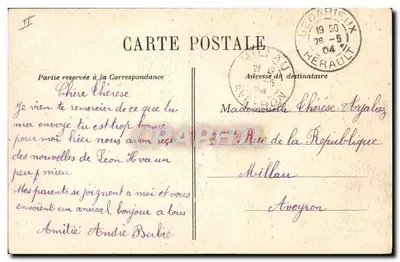 II
BEDARIEUX
19 50
26 - 5
04
HERAULT
MILLAU
AVEYRON
CARTE POSTALE
Partie reservée à la Correspondance
Adresse du destinataire
Chère Thérèse
Je vien te remercier de ce que tu
ma envoye tu est trop bonne
pour moi hier nous avon reçu
des nouvelles de Léon il va un
peu mieu
Mes parents se joignent a moi et vous
envoient un amical bonjour a tous
Amitié André Berbie
Mademoiselle Thérèse
Rue de la Republique
Millau
Aveyron